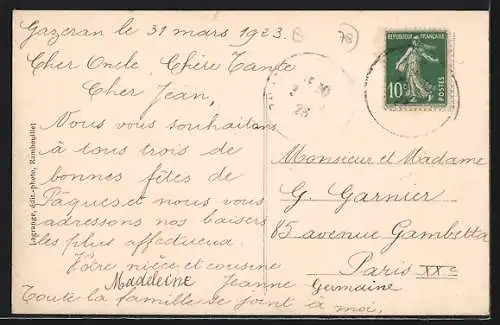 Gazeran le 31 mars 1923.
B
78
Cher Oncle, Chère Tante
Cher Jean,
Nous vous souhaitons
à tous trois de
bonnes fêtes de
Pâques et nous vous
adressons nos baisers
les plus affectueux.
Votre nièce et cousine
Madeleine Jeanne Germaine
Toute la famille se joint à moi.
Lagrange, édit.-photo, Rambouillet
REPUBLIQUE FRANÇAISE
10c
POSTES
30
23
Monsieur et Madame
G. Garnier
85 avenue Gambetta
Paris XXe